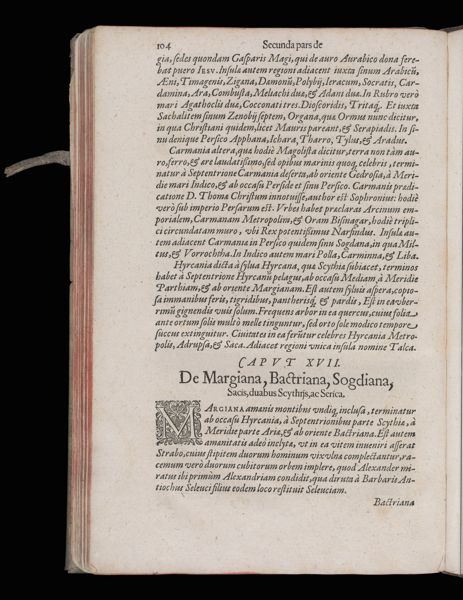 104 Secunda pars de
gia, sedes quondam Gasparis Magi, qui de auro Aurabico dona fere-
bat puero IESV. Insulæ autem regioni adiacent iuxta sinum Arabicũ,
Æni, Timagenis, Zigæna, Dæmonũ, Polybij, Ieracum, Socratis, Car-
damina, Ara, Combusta, Meliachi duæ, & Adani duæ. In Rubro verò
mari Agathoclis duæ, Cocconati tres. Dioscoridis, Tritæq́;. Et iuxta
Sachalitem sinum Zenobij septem, Organa, quæ Ormus nunc dicitur,
in qua Christiani quidem, licet Mauris pareant, & Serapiadis. In si-
nu denique Persico Apphana, Ichara, Tharro, Tylus, & Aradus.
Carmania altera, quæ hodiè Magolista dicitur, terra non tàm au-
ro, ferro, & ære laudatissimo, sed opibus marinis quoq; celebris, termi-
natur à Septentrione Carmania deserta, ab oriente Gedrosia, à Meri-
die mari Indico, & ab occasu Perside et sinu Persico. Carmanis prædi-
catione D. Thomæ Christum innotuisse, author est Sophronius: hodiè
verò sub imperio Persarum est. Vrbes habet præclaras Arcinum em-
porialem, Carmanam Metropolim, & Oram Bisinagar, hodiè tripli-
ci circundatam muro, vbi Rex potentißimus Narsindus. Insulæ au-
tem adiacent Carmaniæ in Persico quidem sinu Sogdana, in qua Mil-
tus, & Vorrochtha. In Indico autem mari Polla, Carminna, & Liba.
Hyrcania dicta à sylua Hyrcana, quæ Scythiæ subiacet, terminos
habet à Septentrione Hyrcanũ pelagus, ab occasu Mediam, à Meridie
Parthiam, & ab oriente Margianam. Est autem syluis aspera, copio-
sa immanibus feris, tigridibus, pantherisq́; & pardis, Est in ea vber-
rimũ gignendis vuis solum. Frequens arbor in ea quercus, cuius folia
ante ortum solis multo melle tinguntur, sed orto sole modico tempore
succus extinguitur. Ciuitates in ea ferũtur celebres Hyrcania Metro-
polis, Adrupsa, & Saca. Adiacet regioni vnica insula nomine Talca.
CAPVT XVII.
De Margiana, Bactriana, Sogdiana,
Sacis, duabus Scythijs, ac Serica.
MARGIANA amœnis montibus vndiq; inclusa, terminatur
ab occasu Hyrcania, à Septentrionibus parte Scythiæ, à
Meridie parte Ariæ, & ab oriente Bactriana. Est autem
amœnitatis adeò inclytæ, vt in ea vitem inueniri asserat
Strabo, cuius stipitem duorum hominum vix vlnæ complectantur, ra-
cemum verò duorum cubitorum orbem implere, quod Alexander mi-
ratus ibi primùm Alexandriam condidit, qua diruta à Barbaris An-
tiochus Seleuci filius eodem loco restituit Seleuciam.
Bactriana